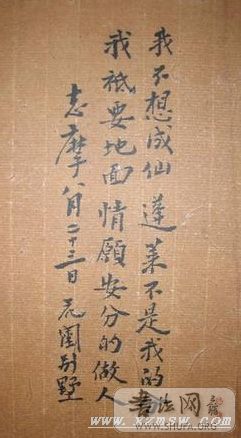 我不想成仙 蓬莱不是我的
我祗要地面 情願安分的做人
志摩 八月二十三日 花園别墅
书法网
WWW.SHUFA.ORG
www.xzmsw.com